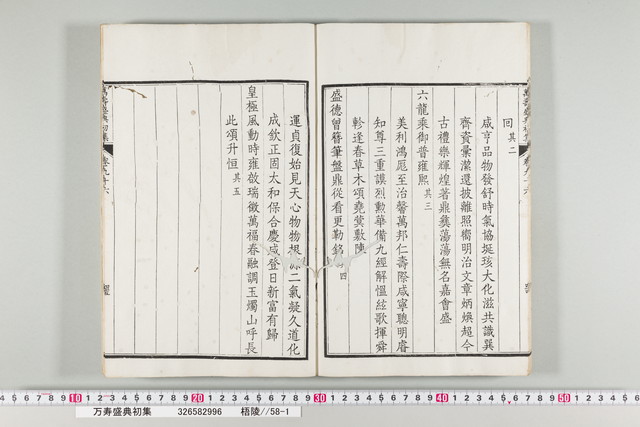 回其二
咸亨品物發舒時氣協埏垓大化滋共識巽
齊資彙潔還披離照嚮明治文章炳煥超今
古禮樂輝煌著鼎彝蕩蕩無名嘉會盛
六龍乘御普雍熙其三
美利鴻厖至治馨萬邦仁壽際咸寧聰明睿
知尊三重謨烈勲華備九經解愠絃歌揮舜
軫逢春草木頌堯蓂敷陳
盛德曾簪筆盤鼎從看更勒銘 四
運貞復始見天心物物根 二氣凝久道化
成欽正固太和保合慶咸登日新富有歸
皇極風動時雍啟瑞徵萬福春融調玉燭山呼長
此頌升恒其五
萬壽盛典初集
卷九十六
10 20 30 40 50
万寿盛典初集 326582996 梧陵//58-1